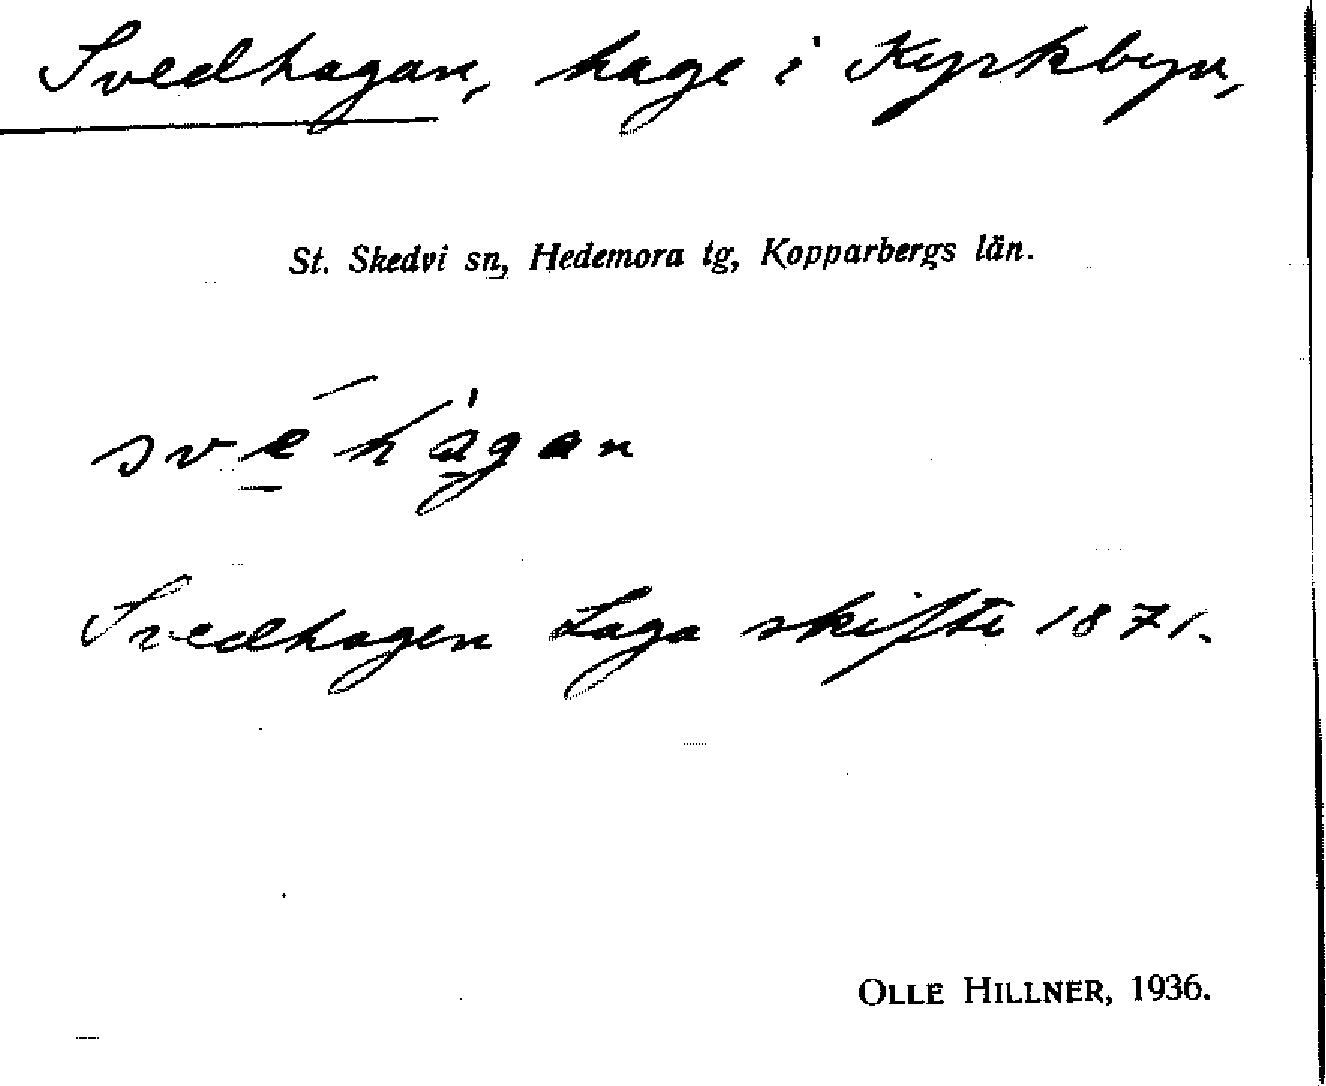 Svedhagan, hage i Kyrkbyn,
St. Skedvi sn, Hedemora tg, Kopparbergs län.
své̱hàgan
Svedhagen Laga skifte 1871.
OLLE HILLNER, 1936.